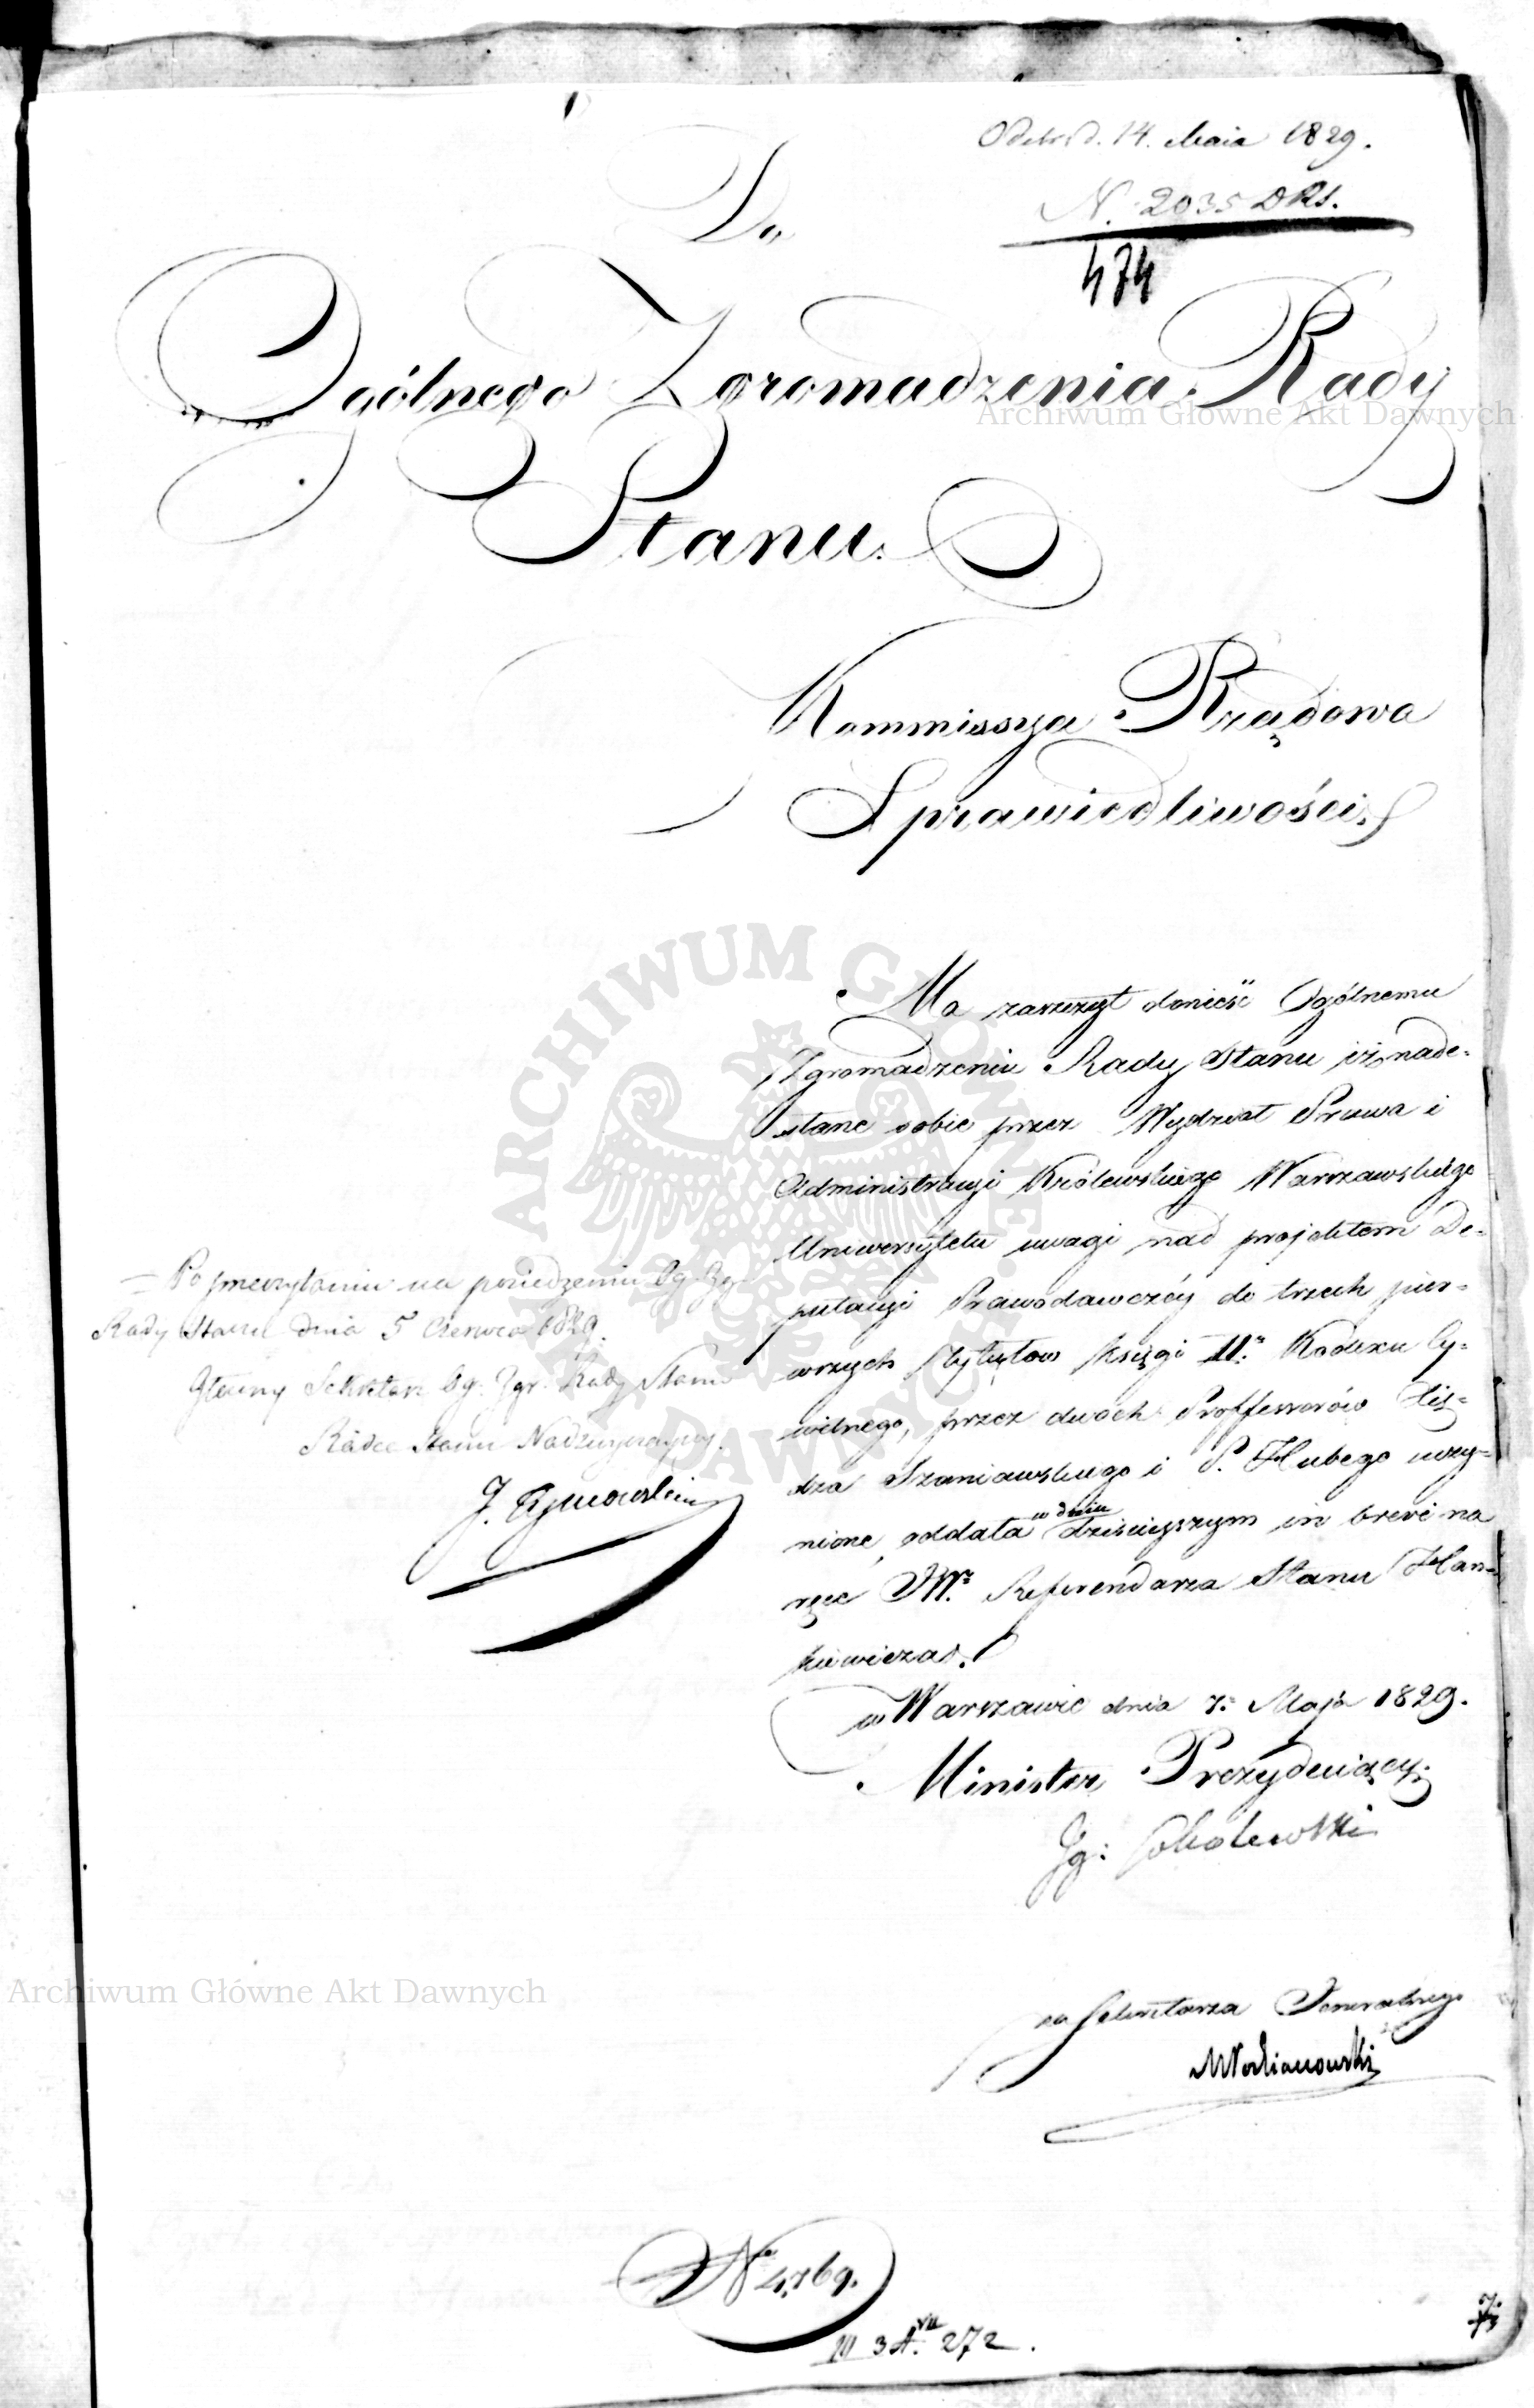 Odebr. d. 14. Maia 1829.
N. 2035 DRS.
474
Do
Ogólnego Zgromadzenia Rady
Stanu.
Kommissya Rządowa
Sprawiedliwości.
Ma zaszczyt donieść Ogólnemu
Zgromadzeniu Rady Stanu iż nade-
słane sobie przez Wydział Prawa i
Administracyi Królewskiego Warszawskiego
Uniwersytetu uwagi nad projektem De-
putacyi Prawodawczéy do trzech pier-
wszych Tytułów Księgi II. Kodexu Cy-
wilnego, przez dwóch Proffessorów Xię-
dza Szaniawskiego i P. Hubego uczy-
nione, oddała w dniu dzisieyszym in brevi na
ręce JW. Referendarza Stanu Han-
kiewicza.
w Warszawie dnia 7. Maja 1829.
Minister Prezyduiący.
Ig: Sobolewski
za Sekretarza Generalnego
= Po przeczytaniu na posiedzeniu Og. Zgr.
Rady Stanu dnia 5 Czerwca 1829.
Główny Sekretarz Og. Zgr. Rady Stanu
Radca Stanu Nadzwyczayny.
J. Tymowski
N 4,769.
III 3 A. VII 272.
Archiwum Główne Akt Dawnych
ARCHIWUM GŁÓWNE AKT DAWNYCH
Archiwum Główne Akt Dawnych